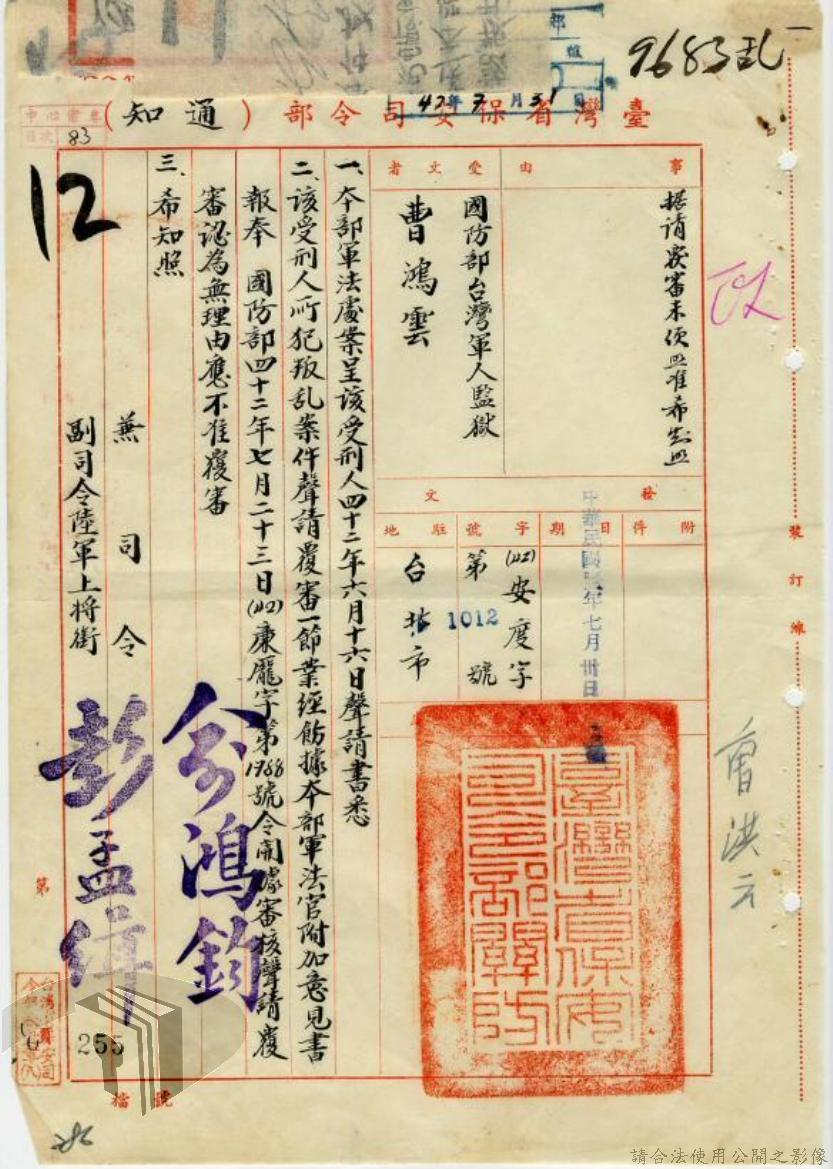 9683乱
42年7月31日
臺灣省保安司令部(通知)
83
事由
據請覆審未便照准希知照
受文者
國防部台灣軍人監獄
曹鴻雲
附件
發文
日期
中華民國 年七月卅日
字號
(42)安度字
第1012號
駐地
台北市
一、本部軍法處案呈該受刑人四十二年六月十六日聲請書悉
二、該受刑人所犯叛乱案件聲請覆審一節業經飭據本部軍法官附加意見書
報奉 國防部四十二年七月二十三日(42)康龐字第1988號令開據審核聲請覆
審認為無理由應不准覆審
三、希知照
兼司令
俞鴻鈞
副司令陸軍上將銜
彭孟緝
12
臺灣省保安司令部關防
曹洪云
裝訂線
第
255
檔號
請合法使用公開之影像